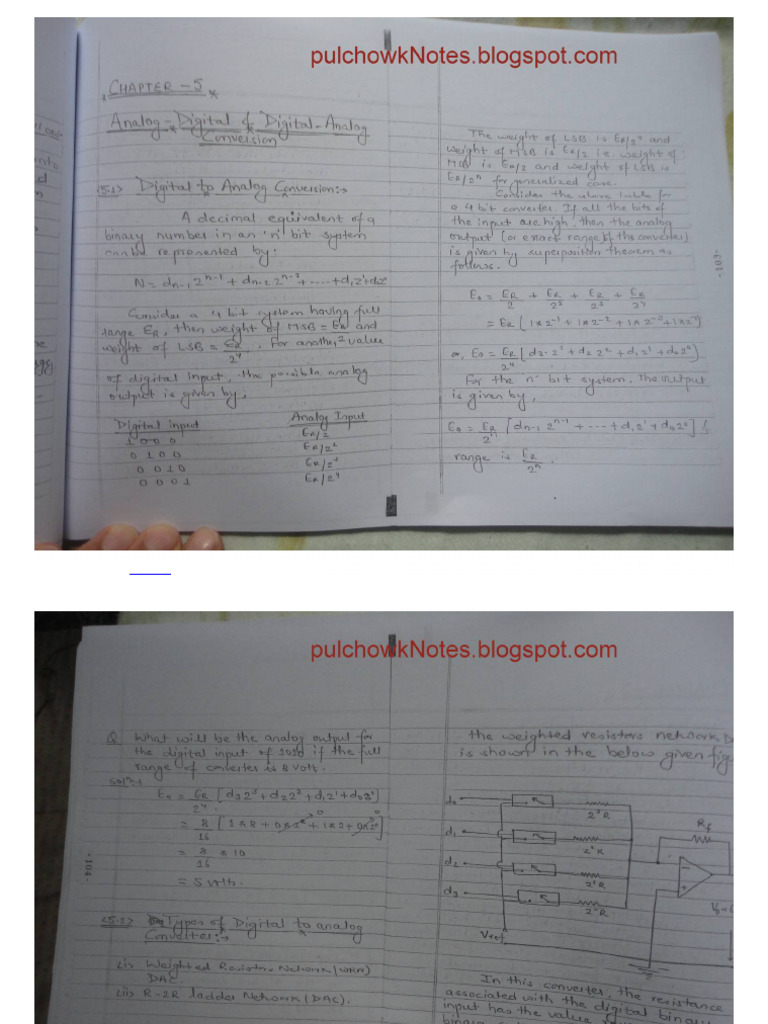 pulchowkNotes.blogspot.com
CHAPTER - 5
Analog - Digital & Digital - Analog
Conversion
<5.1> Digital to Analog Conversion:→
A decimal equivalent of a
binary number in an 'n' bit system
can be represented by:
N = dn-1 2^n-1 + dn-2 2^n-2 + ---- + d1 2^1 + d0 2^0
Consider a 4 bit system having full
range ER, then weight of MSB = ER/2 and
weight of LSB = ER/2^4. For another value
of digital input, the possible analog
output is given by,
Digital input Analog Input
1 0 0 0 ER/2
0 1 0 0 ER/2^2
0 0 1 0 ER/2^3
0 0 0 1 ER/2^4
The weight of LSB is ER/2^n and
weight of MSB is ER/2 i.e. weight of
MSB is ER/2 and weight of LSB is
ER/2^n for generalized case.
Consider the above table for
a 4 bit converter. If all the bits of
the input are high, then the analog
output (or exact range of the converter)
is given by superposition theorem as
follows.
E0 = ER/2 + ER/2^2 + ER/2^3 + ER/2^4
= ER [1*2^-1 + 1*2^-2 + 1*2^-3 + 1*2^-4]
or, E0 = ER/2^4 [d3 2^3 + d2 2^2 + d1 2^1 + d0 2^0]
For the 'n' bit system, the output
is given by,
E0 = ER/2^n [dn-1 2^n-1 + --- + d1 2^1 + d0 2^0]
range is ER/2^n.
-103-
pulchowkNotes.blogspot.com
Q What will be the analog output for
the digital input of 1010 if the full
range of converter is 8 Volt.
Soln:→
E0 = ER/2^4 [d3 2^3 + d2 2^2 + d1 2^1 + d0 2^0]
= 8/16 [1*8 + 0*2^2 + 1*2 + 0*2^0]
= 8/16 * 10
= 5 volt.
-104-
<5.2> Types of Digital to analog
Converter:→
<i> Weighted Resistor Network (WRN)
DAC.
<ii> R-2R ladder Network (DAC).
the weighted resistors network
is shown in the below given
d0
2^3R
d1
2^2R
d2
2^1R
d3
2^0R
Vref
Rf
In this converter, the resistance
associated with the digital
input has the value